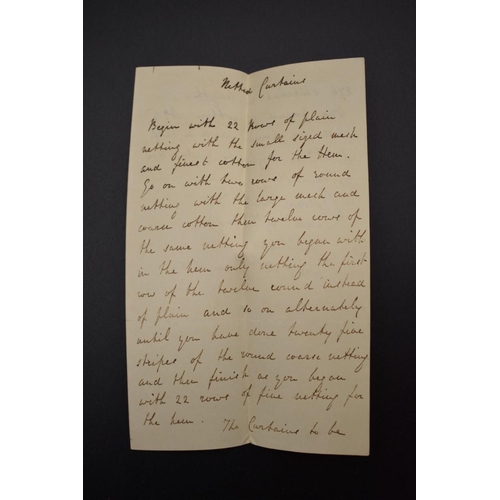 Netted Curtains
Begin with 22 Rows of plain
netting with the small sized mesh
and finest cotton for the Hem.
Go on with two rows of round
netting with the large mesh and
coarse cotton then twelve rows of
the same netting you began with
in the hem only netting the first
row of the twelve round instead
of plain and so on alternately
until you have done twenty five
stripes of the round coarse netting
and then finish as you began
with 22 rows of fine netting for
the hem. The Curtains to be